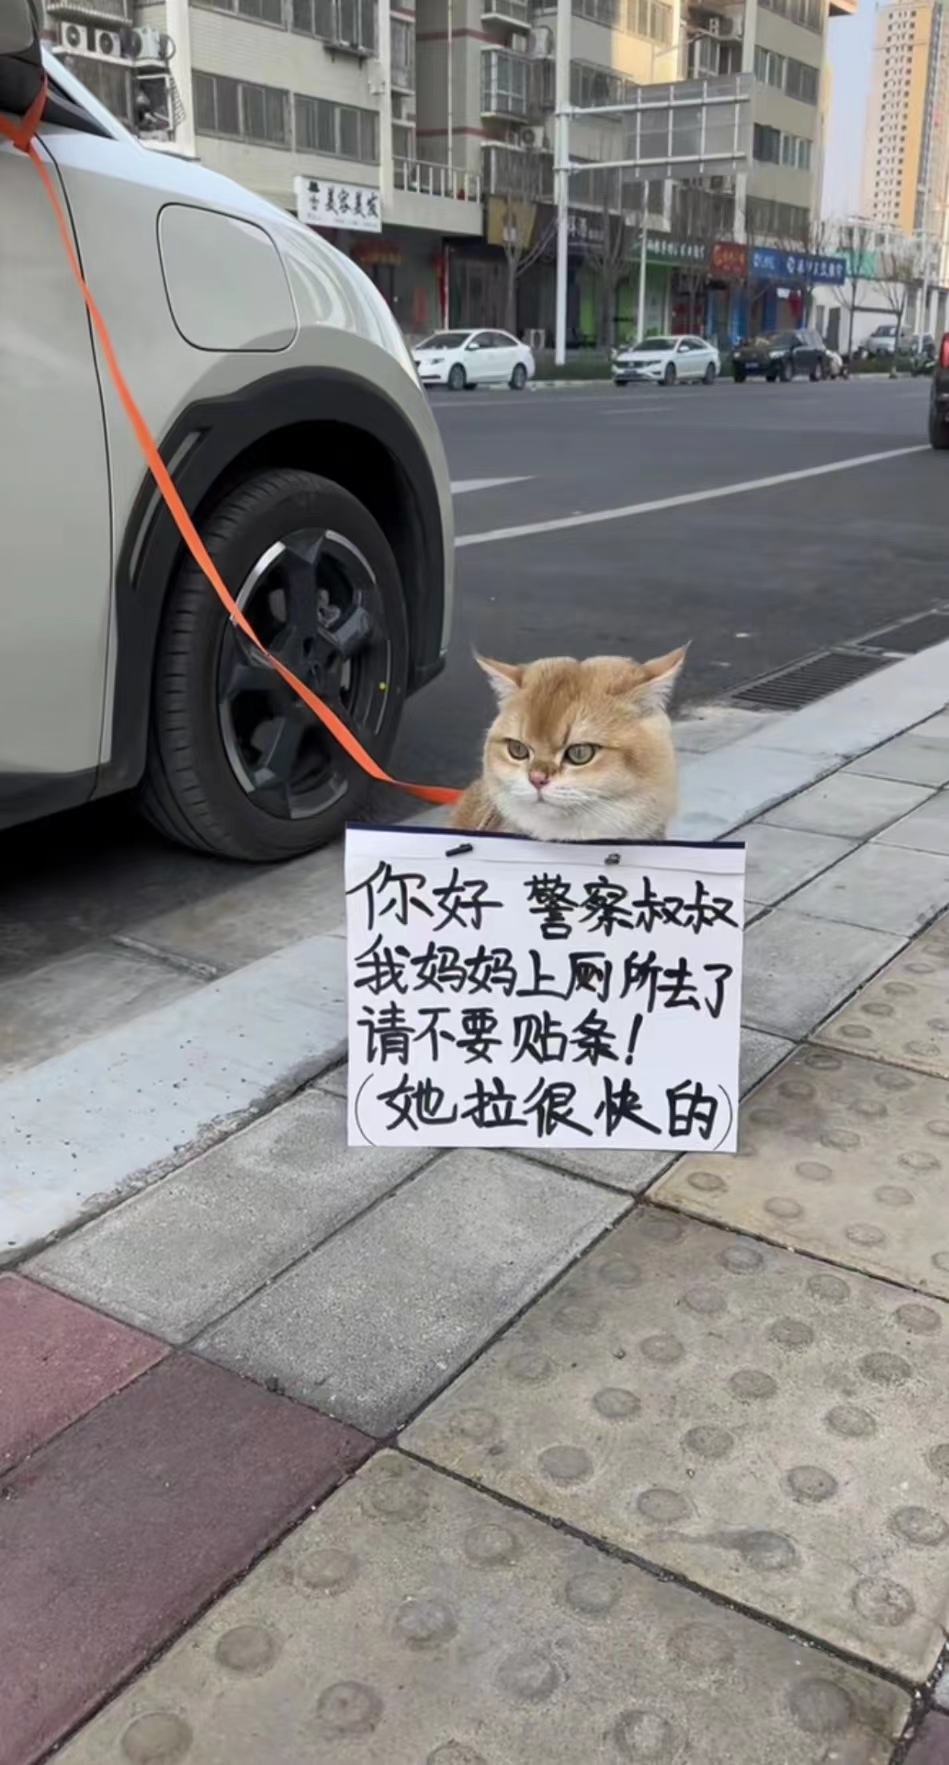 美容美发
你好 警察叔叔
我妈妈上厕所去了
请不要贴条!
(她拉很快的)